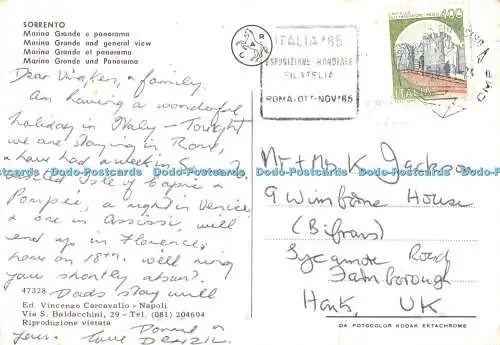 SORRENTO
Marina Grande e panorama
Marina Grande and general view
Marina Grande et panorama
Marina Grande und Panorama
Dear family.
Am having a wonderful
holiday in Italy - Tonight
we are staying in Rome,
& have had a week in
visited Isle of Capri &
Pompei, a night in Venice
& one in Assissi, will
end up in Florence,
home on 18th. Will ring
you shortly after.
Dads stay well
love DENZIL.
47328
Ed. Vincenzo Carcavallo - Napoli
Via S. Baldacchini, 29 - Tel. (081) 204694
Riproduzione vietata
ITALIA '85
ESPOSIZIONE MONDIALE
FILATELIA
ROMA-OTT-NOV'85
400
ITALIA
Mr + Mrs K Jackson
9 Wimborne House
(Bifrons)
Sycamore Road
Farnborough
Hants, UK
DA FOTOCOLOR KODAK EKTACHROME
Dodo-Postcards Dodo-Postcards Dodo-Postcards Dodo-Postcards